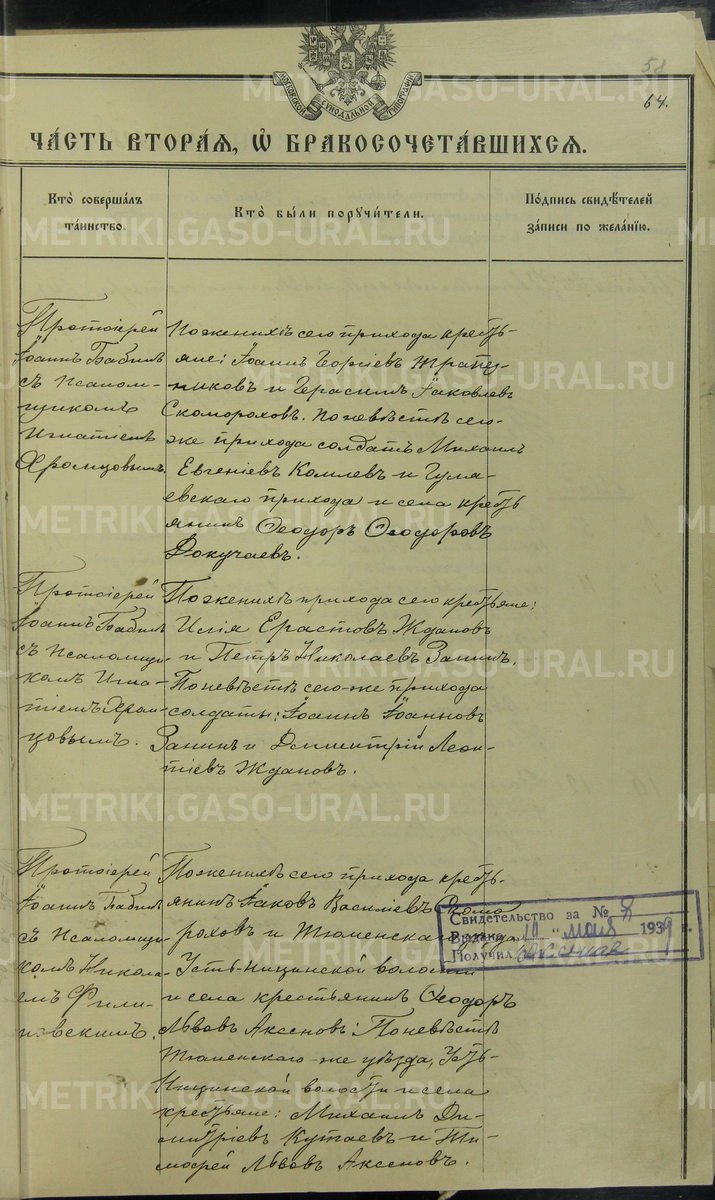 МОСКОВСКОЙ СУНОДАЛЬНОЙ ТИПОГРАФІИ
58
64.
ЧАСТЬ ВТОРАЯ, Ѡ БРАКОСОЧЕТАВШИХСЯ.
Кто совершалъ
таинство.
Кто были поручители.
Подпись свидѣтелей
записи по желанію.
Протоіерей
Іоаннъ Бабинъ
съ псалом-
щикомъ
Игнатіемъ
Хромцовымъ.
По женихѣ сего прихода кресть-
яне: Іоаннъ Георгіевъ
никовъ и Герасимъ Іаковлевъ
Скомороховъ. По невѣстѣ сего-
же прихода солдатъ Михаилъ
Евгеніевъ Комлевъ и Гуля-
евскаго прихода и села кресть
янинъ Ѳеодоръ Ѳеодоровъ
Докучаевъ.
Протоіерей
Іоаннъ Бабинъ
съ псаломщи-
комъ Игна-
тіемъ Хром-
цовымъ.
По женихѣ прихода сего крестьяне:
Илія Ерастовъ Ждановъ
и Петръ Николаевъ Занинъ.
По невѣстѣ сего-же прихода
солдаты: Іоаннъ Іоанновъ
Занинъ и Димитрій Леон-
тіевъ Ждановъ.
Протоіерей
Іоаннъ Бабинъ
съ псаломщи-
комъ Никола-
емъ Фили-
повскимъ.
По женихѣ сего прихода кресть-
янинъ Іаковъ Василіевъ Скомо
роховъ и Тюменскаго уѣзда
Усть-Ницинской волости
и села крестьянинъ Ѳеодоръ
Львовъ Аксеновъ: По невѣстѣ
Тюменскаго-же уѣзда, Усть-
Ницинской волости и села
крестьяне: Михаилъ Ди-
митріевъ Кутаевъ и Ти-
моѳей Львовъ Аксеновъ.
Свидетельство за №
Выдано 10 " мая 1939 г.
Получил
METRIKI.GASO-URAL.RU